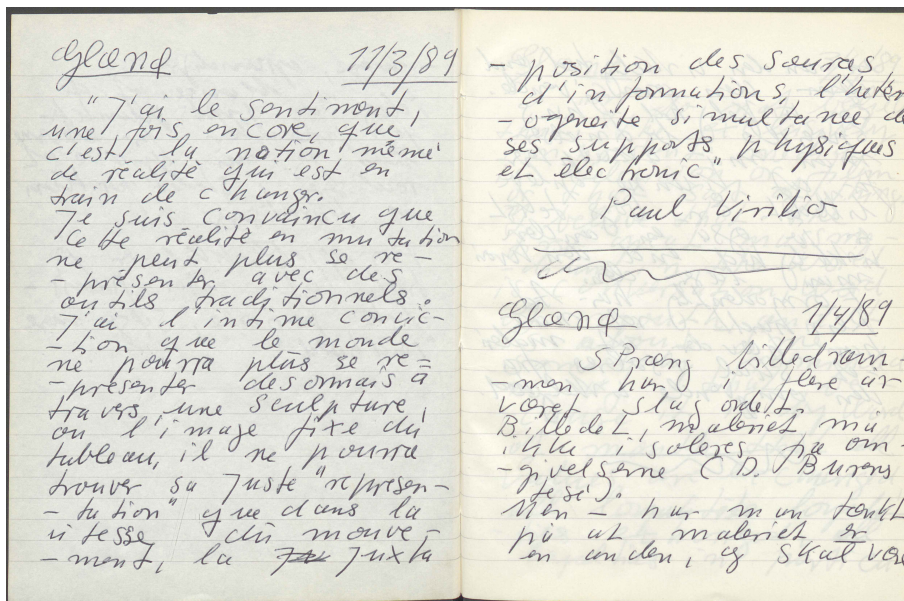 Gland 11/3/89
"J'ai le sentiment,
une fois encore, que
c'est la notion même
de réalité qui est en
train de changer.
Je suis convaincu que
cette réalité en mutation
ne peut plus se re-
-présenter avec des
outils traditionnels.
J'ai l'intime convic-
-tion que le monde
ne pourra plus se re=
-présenter desormais à
travers une sculpture,
ou l'image fixe du
tableau, il ne pourra
trouver sa juste "represen-
-tation" que dans la
vitesse du mouve-
-ment, la juxta
- position des sources
d'informations, l'hetér
-ogeneité simultanée de
ses supports physiques
et électronic"
Paul Virilio
Gland 1/4/89
Spræng billedram-
-men har i flere år
været slagordet.
Billedet, maleriet må
ikke isoleres fra om-
-givelserne (D. Burens
tese).
Men - har man tænkt
på at maleriet er
en anden, og skal være